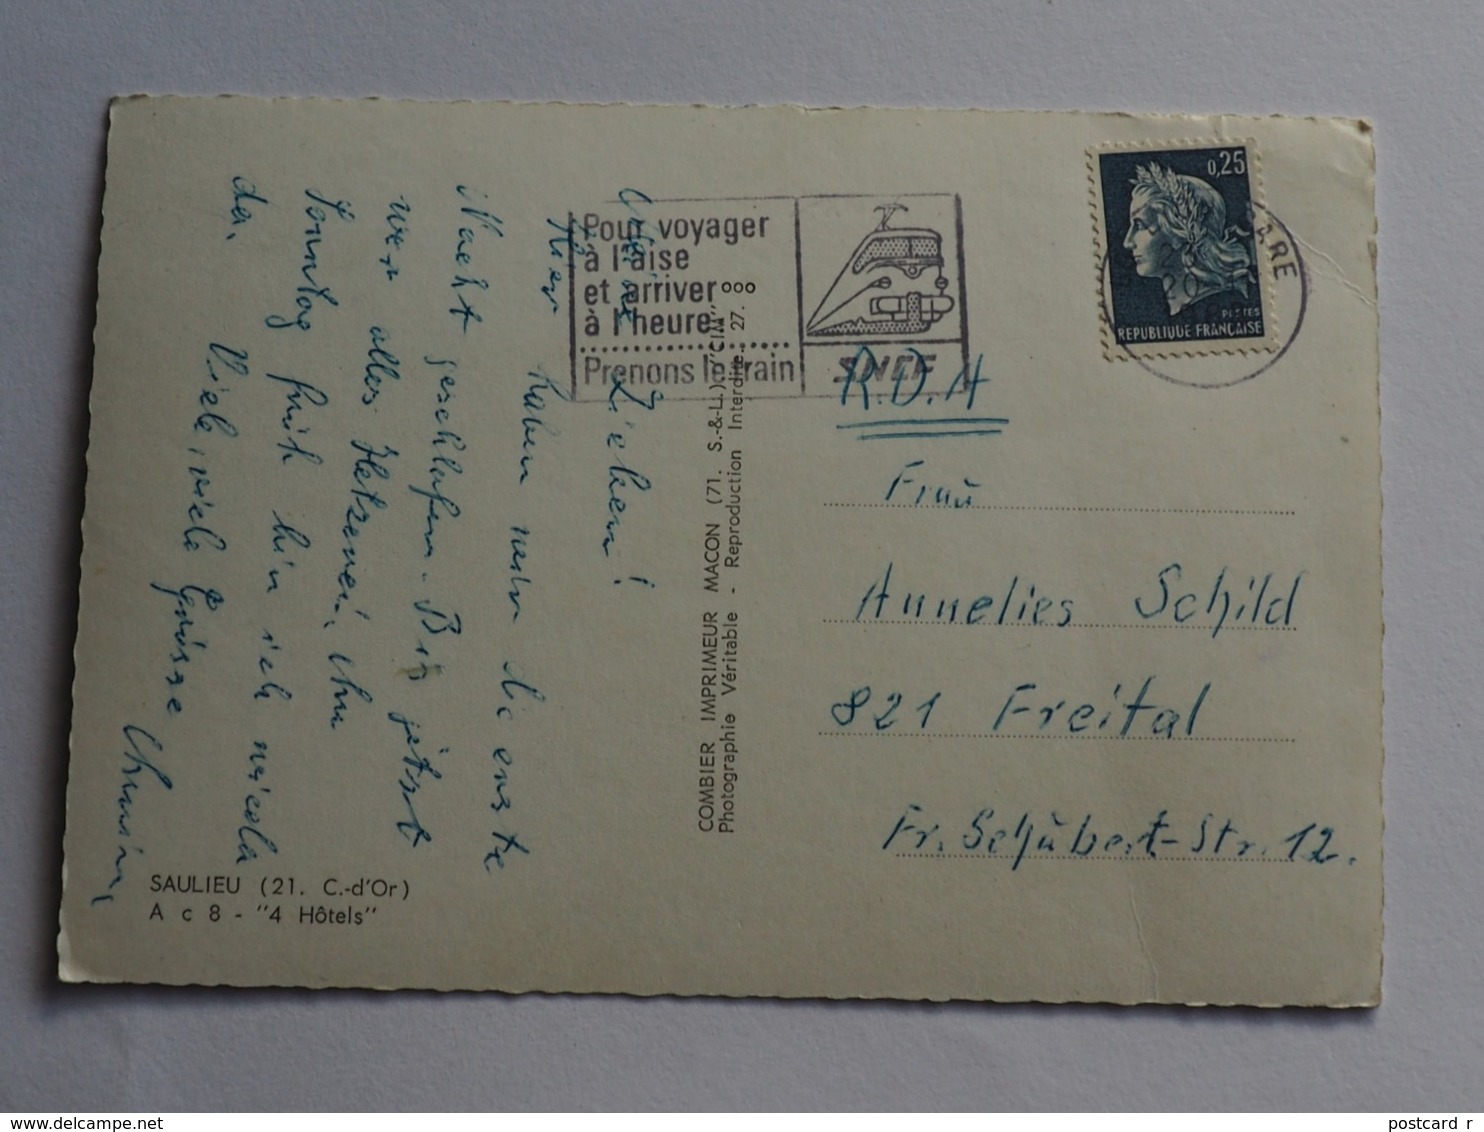 0,25
POSTES
REPUBLIQUE FRANÇAISE
GARE
Pour voyager
à l'aise
et arriver
à l'heure
Prenons le train
SNCF
R.D.A
Frau
Annelies Schild
821 Freital
Fr. Schubert-Str. 12.
Meine Lieben!
Hier haben wir die erste
Nacht geschlafen. Bis jetzt
war alles Hetzerei.
Sonntag früh bin ich wieder
da.
Viele, viele Grüsse
COMBIER IMPRIMEUR MACON (71. S.-&-L.) "CIM"
Photographie Véritable - Reproduction Interdite 27.
SAULIEU (21. C.-d'Or)
A c 8 - "4 Hôtels"
postcard_r